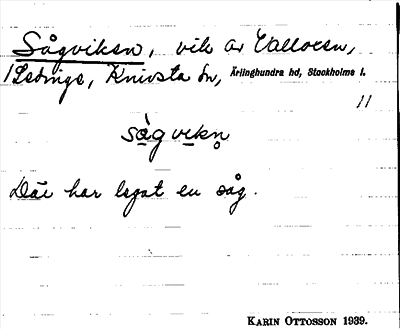 Sågviksn, vik av Valloxsn,
Ledinge, Knivsta sn, Ärlinghundra hd, Stockholms l.
11
sågvikn
Där har legat en såg.
KARIN OTTOSSON 1939.